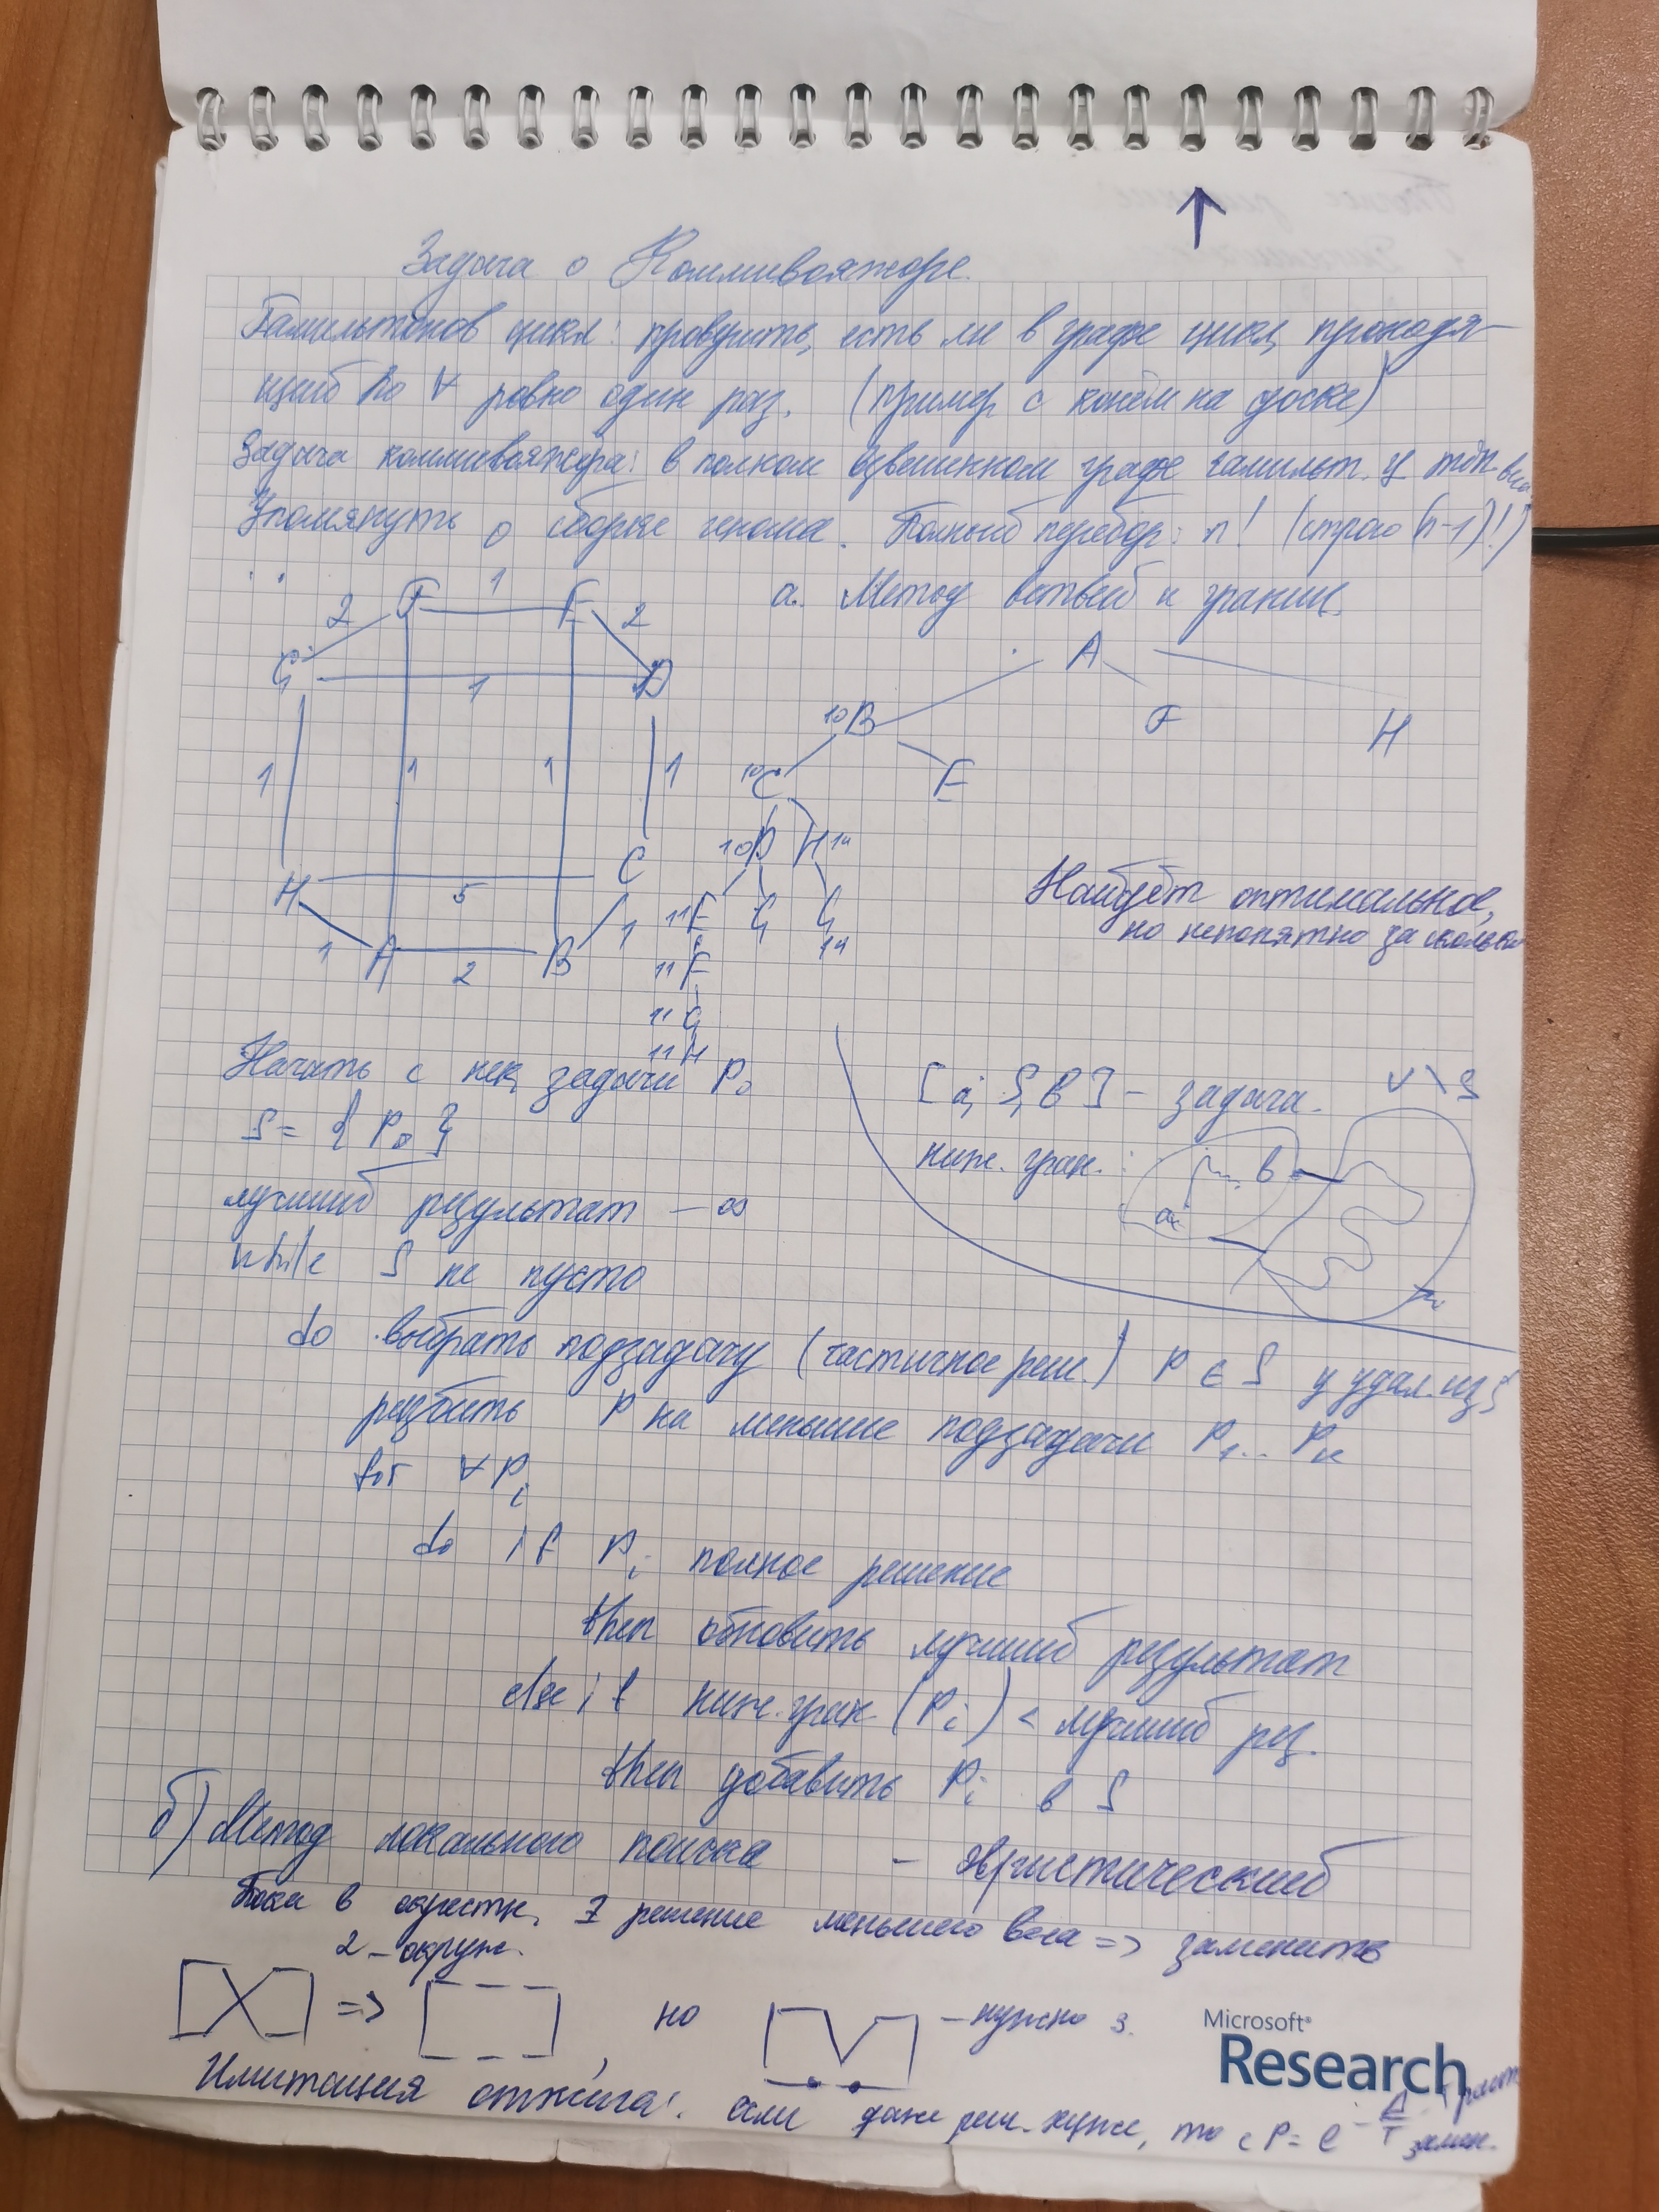 Задача о Коммивояжоре.
Гамильтонов цикл: проверить, есть ли в графе цикл, проходя-
щий по ∀ ровно один раз. (пример с конём на доске)
Задача коммивояжора: в полном взвешенном графе гамильт. ц min веса
Упомянуть о сборке генома. Полный перебор: n! (строго (n-1)!)
а. Метод ветвей и границ.
2 F 1 E 2
G 1 D
1 1 1 1
H 5 C
1 A 2 B 1
A
10 B F H
10 C E
10 D H 14
11 E G G
11 F 14
11 G
11 H
Найдёт оптимальное,
но непонятно за сколько
Начать с нек. задачи P₀
S = { P₀ }
лучший результат – ∞
while S не пусто
[a, S, b] – задача.
V \ S
ниж. гран. :
a b
do выбрать подзадачу (частичное реш.) P ∈ S и удал. из S
разбить P на меньшие подзадачи P₁... Pₖ
for ∀ Pᵢ
do if Pᵢ полное решение
then обновить лучший результат
else if ниж. гран. (Pᵢ) < лучший рез.
then добавить Pᵢ в S
б) Метод локального поиска – эвристический
Пока в окрестн. ∃ решение меньшего веса => заменить
2 – окруж.
=> , но – нужно 3.
Microsoft®
Research
Имитация отжига: если даже реш. хуже, то с P = e^(-Δ/T) замен.